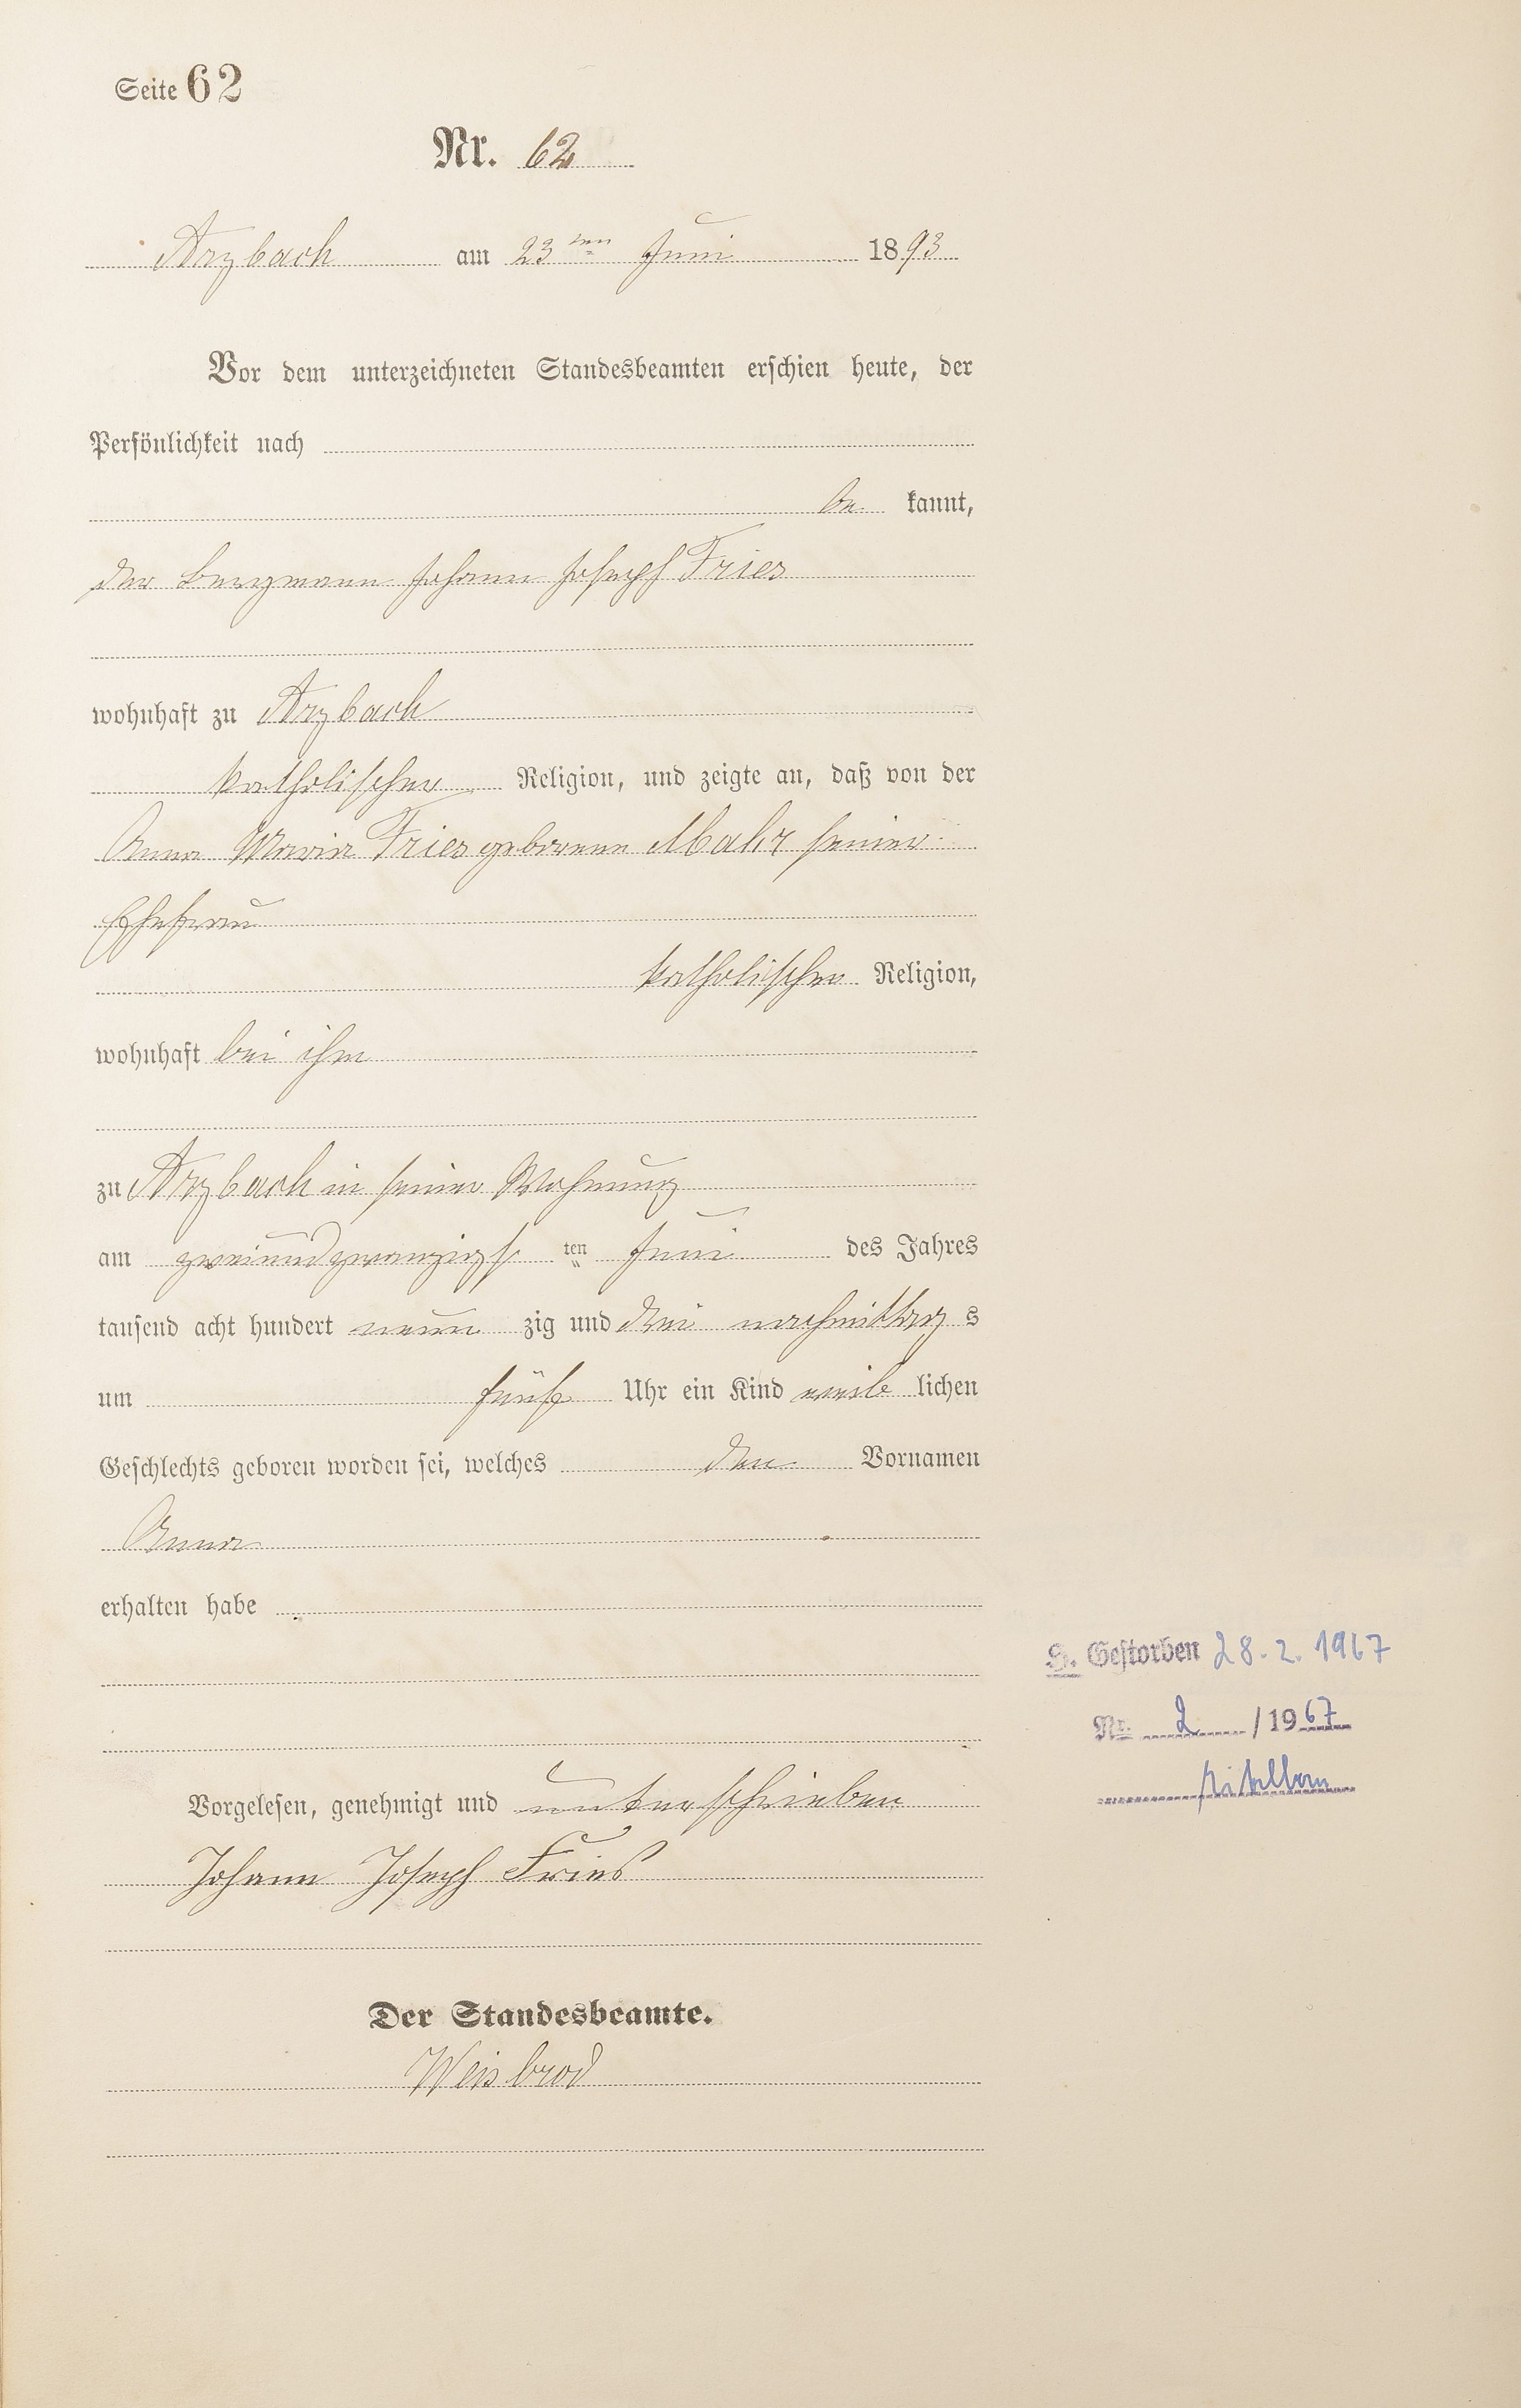 Seite 62
Nr. 62
Arzbach am 23ten Juni 1893
Vor dem unterzeichneten Standesbeamten erschien heute, der
Persönlichkeit nach
be kannt,
der Bergmann Johann Joseph Fries
wohnhaft zu Arzbach
katholischer Religion, und zeigte an, daß von der
Anna Maria Fries geborene Mahr seiner
Ehefrau
katholischer Religion,
wohnhaft bei ihm
zu Arzbach in seiner Wohnung
am zweiundzwanzigs ten Juni des Jahres
tausend acht hundert neun zig und drei nachmittag s
um fünf Uhr ein Kind weib lichen
Geschlechts geboren worden sei, welches den Vornamen
Anna
erhalten habe
S. Gestorben 28.2.1967
Nr. 2 / 1967
Vorgelesen, genehmigt und unterschrieben
Johann Joseph Fries
Der Standesbeamte.
Weisbrod